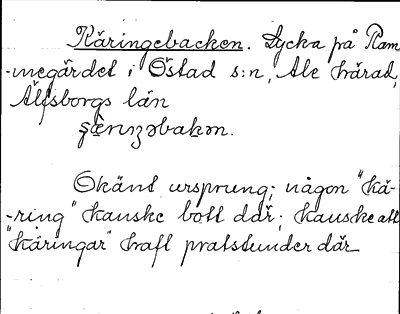 Käringebacken. Lycka på Ram-
-megärdet i Östad s:n, Ale härad,
Älfsborgs län
şœ̂nnʒəbakən.
Okänt ursprung; någon "kä-
-ring" kanske bott där; kanske att
"käringar" haft pratstunder där